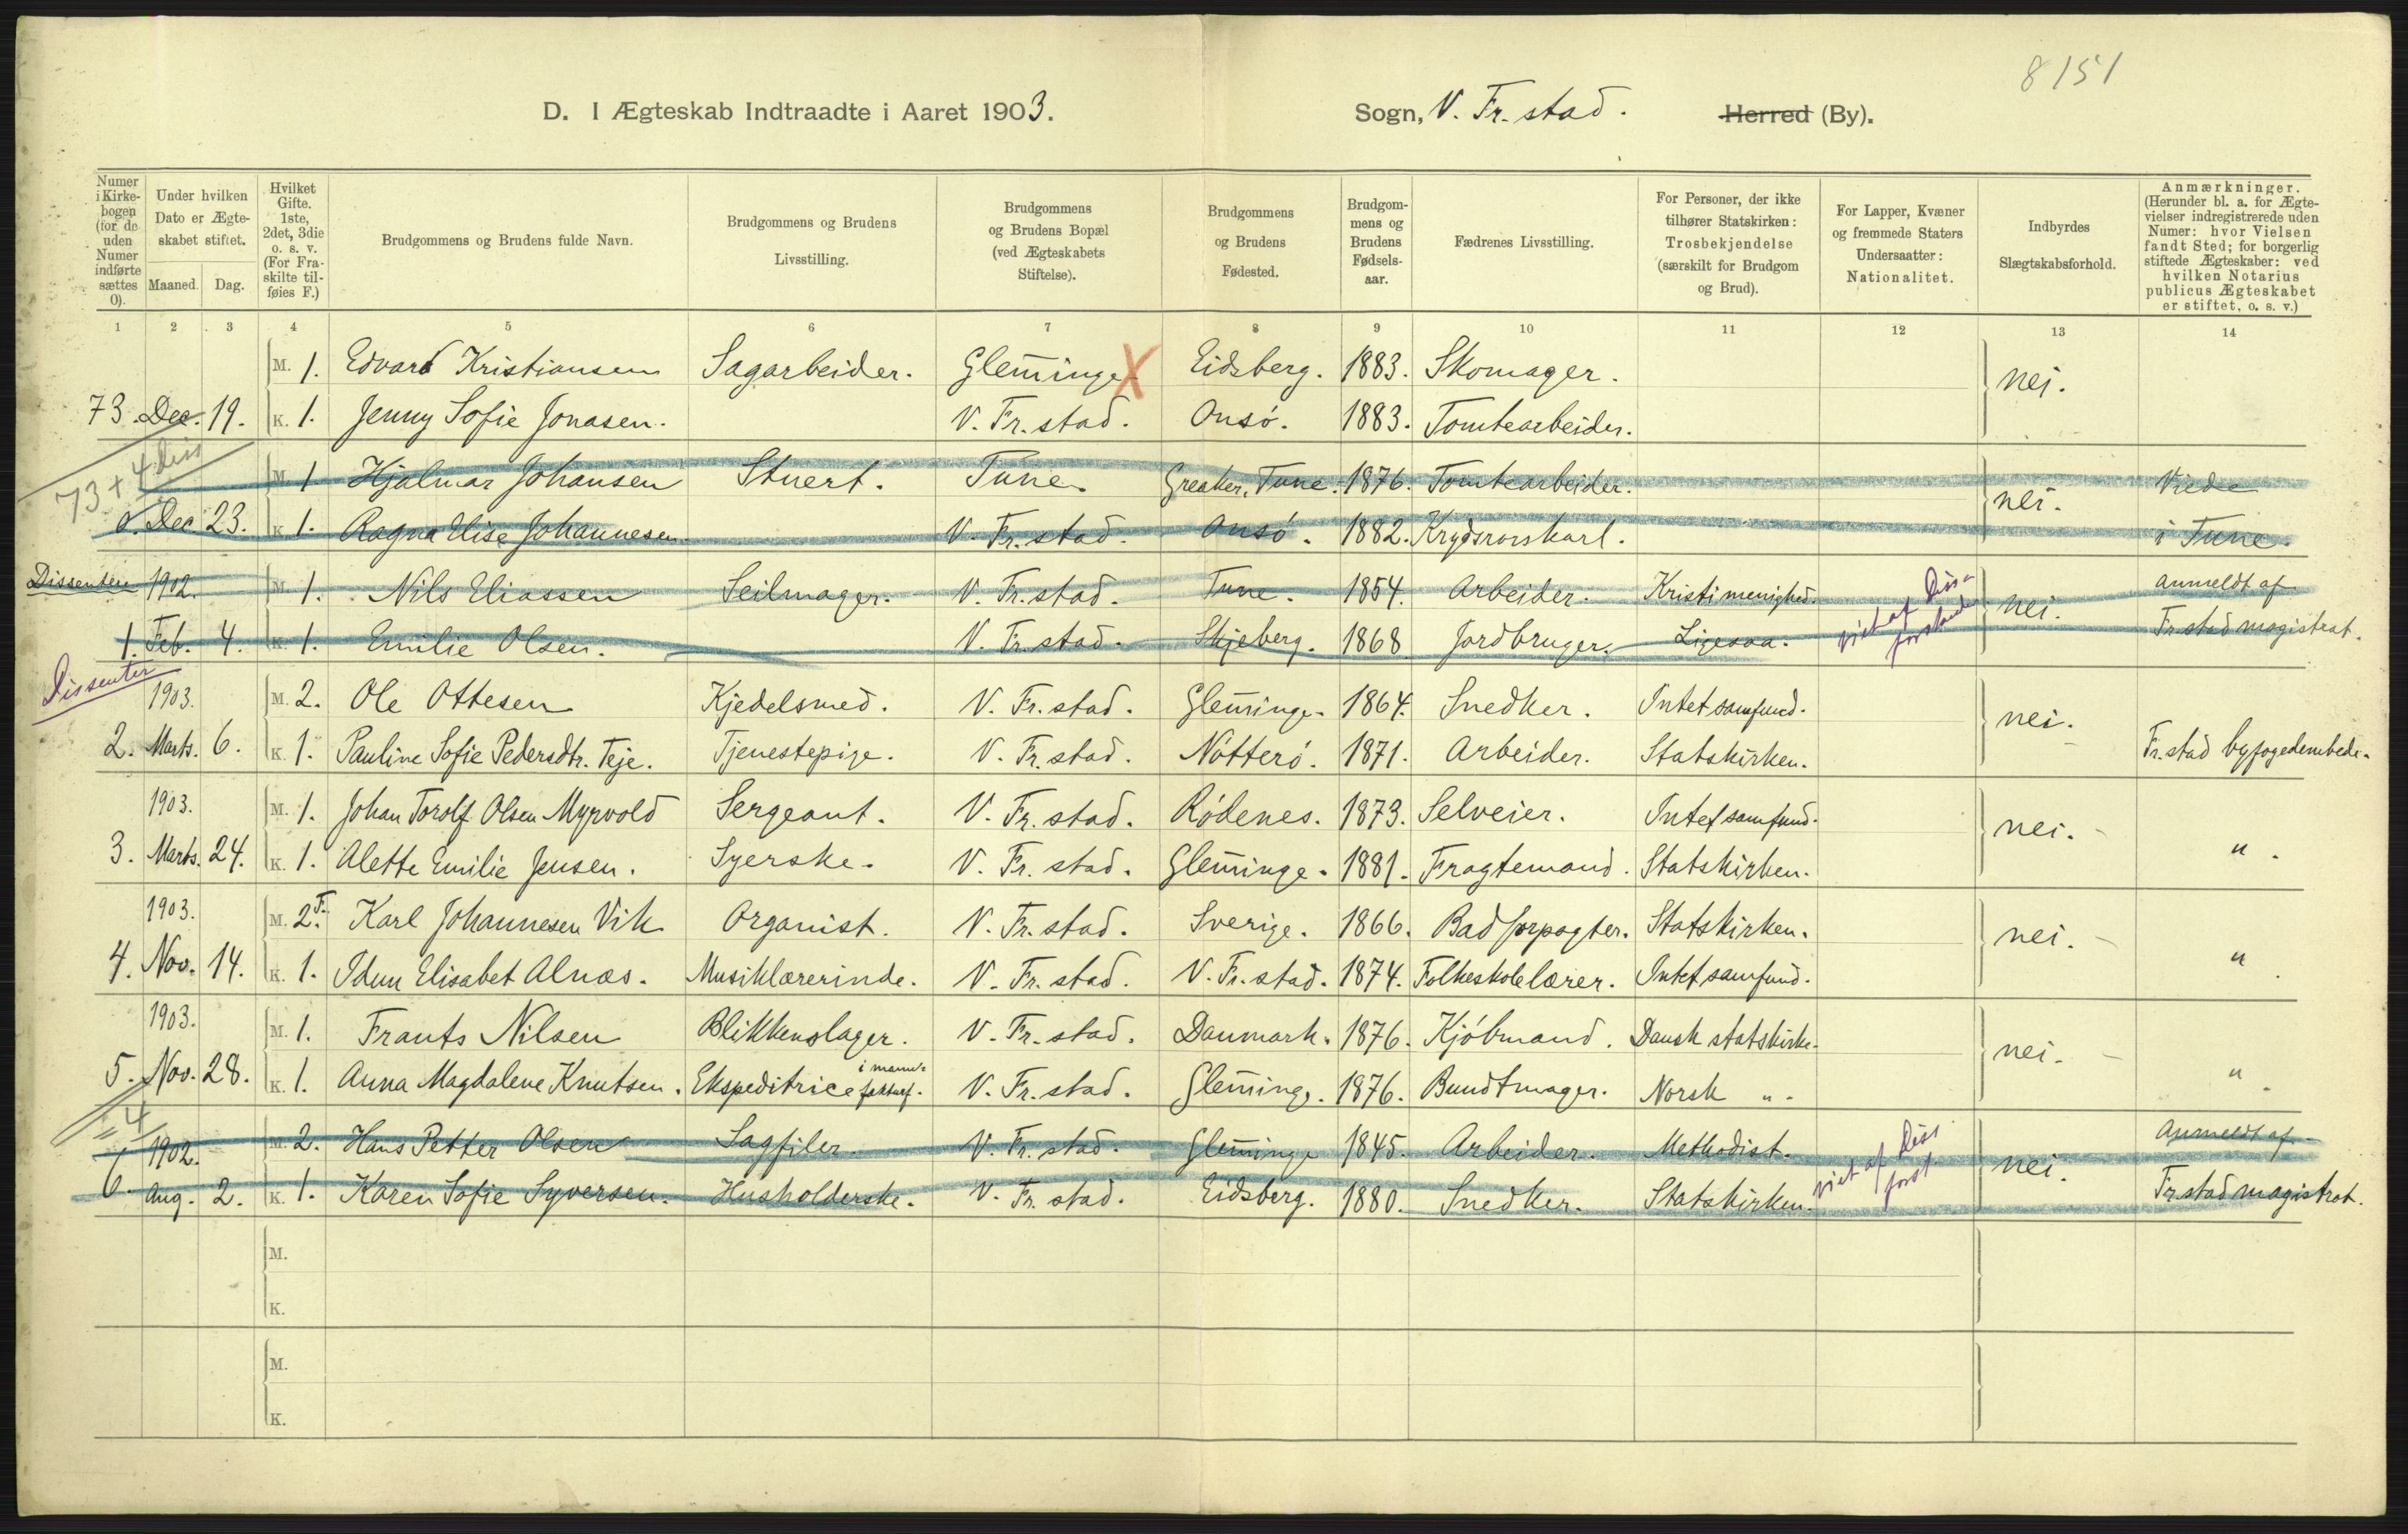 8151
D. I Ægteskab Indtraadte i Aaret 1903. Sogn, V. Fr.stad. Herred (By).
Numer i Kirkebogen (for de uden Numer indførte sættes 0).
Under hvilken Dato er Ægteskabet stiftet.
Maaned. Dag.
Hvilket Gifte. 1ste, 2det, 3die o. s. v. (For Fraskilte tilføies F.)
Brudgommens og Brudens fulde Navn.
Brudgommens og Brudens Livsstilling.
Brudgommens og Brudens Bopæl (ved Ægteskabets Stiftelse).
Brudgommens og Brudens Fødested.
Brudgommens og Brudens Fødselsaar.
Fædrenes Livsstilling.
For Personer, der ikke tilhører Statskirken: Trosbekjendelse (særskilt for Brudgom og Brud).
For Lapper, Kvæner og fremmede Staters Undersaatter: Nationalitet.
Indbyrdes Slægtskabsforhold.
Anmærkninger. (Herunder bl. a. for Ægtevielser indregistrerede uden Numer: hvor Vielsen fandt Sted; for borgerlig stiftede Ægteskaber: ved hvilken Notarius publicus Ægteskabet er stiftet, o. s. v.)
1 2 3 4 5 6 7 8 9 10 11 12 13 14
M. 1. Edvard Kristiansen Sagarbeider. Glemminge X Eidsberg. 1883. Skomager. nei.
73. Dec. 19. K. 1. Jenny Sofie Jonasen. V. Fr. stad. Onsö. 1883. Tomtearbeider.
73 + 4 diss
M. 1 Hjalmar Johansen Stuert. Tune. Greaker, Tune. 1876. Tomtearbeider. nei. Viede
0. Dec. 23. K. 1. Ragna Elise Johannesen. V. Fr. stad. Onsö. 1882. Krydsrorskarl. i Tune.
Dissentere 1902. M. 1. Nils Eliassen Seilmager. V. Fr. stad. Tune. 1854. Arbeider. Kristi menighed. viet af Dissforstander nei. Anmeldt af
1. Feb. 4. K. 1. Emilie Olsen. V. Fr. stad. Skjeberg. 1868 Jordbruger. Ligesaa. Fr.stad magistrat.
Dissenter
1903. M. 2. Ole Ottesen Kjedelsmed. V. Fr. stad. Glemminge. 1864. Snedker. Intet samfund. nei.
2. Marts. 6. K. 1. Pauline Sofie Pedersdtr. Teje. Tjenestepige. V. Fr. stad. Nötterö. 1871. Arbeider. Statskirken. Fr.stad byfogedembede.
1903. M. 1. Johan Torolf Olsen Myrvold Sergeant. V. Fr. stad. Rödenes. 1873. Selveier. Intet samfund. nei.
3. Marts. 24. K. 1. Alette Emilie Jensen. Syerske. V. Fr. stad. Glemminge. 1881. Fragtemand. Statskirken. "
1903. M. 2.F. Karl Johannesen Vik Organist. V. Fr. stad. Sverige. 1866. Badforpagter. Statskirken. nei.
4. Nov. 14. K. 1. Idun Elisabet Alnæs. Musiklærerinde. V. Fr. stad. V. Fr. stad. 1874. Folkeskolelærer. Intet samfund. "
1903. M. 1. Frants Nilsen Blikkenslager. V. Fr. stad. Danmark. 1876. Kjöbmand. Dansk statskirke. nei.
5. Nov. 28. K. 1. Anna Magdalene Knutsen. Ekspeditrice i manufakturf. V. Fr. stad. Glemminge. 1876. Bundtmager. Norsk " "
= 4
1902. M. 2. Hans Petter Olsen Sagfiler. V. Fr. stad. Glemminge 1845. Arbeider. Methodist. viet af Diss. forst. nei. Anmeldt af
6. Aug. 2. K. 1. Karen Sofie Syversen. Husholderske. V. Fr. stad. Eidsberg. 1880. Snedker. Statskirken. Fr.stad magistrat.
M.
K.
M.
K.